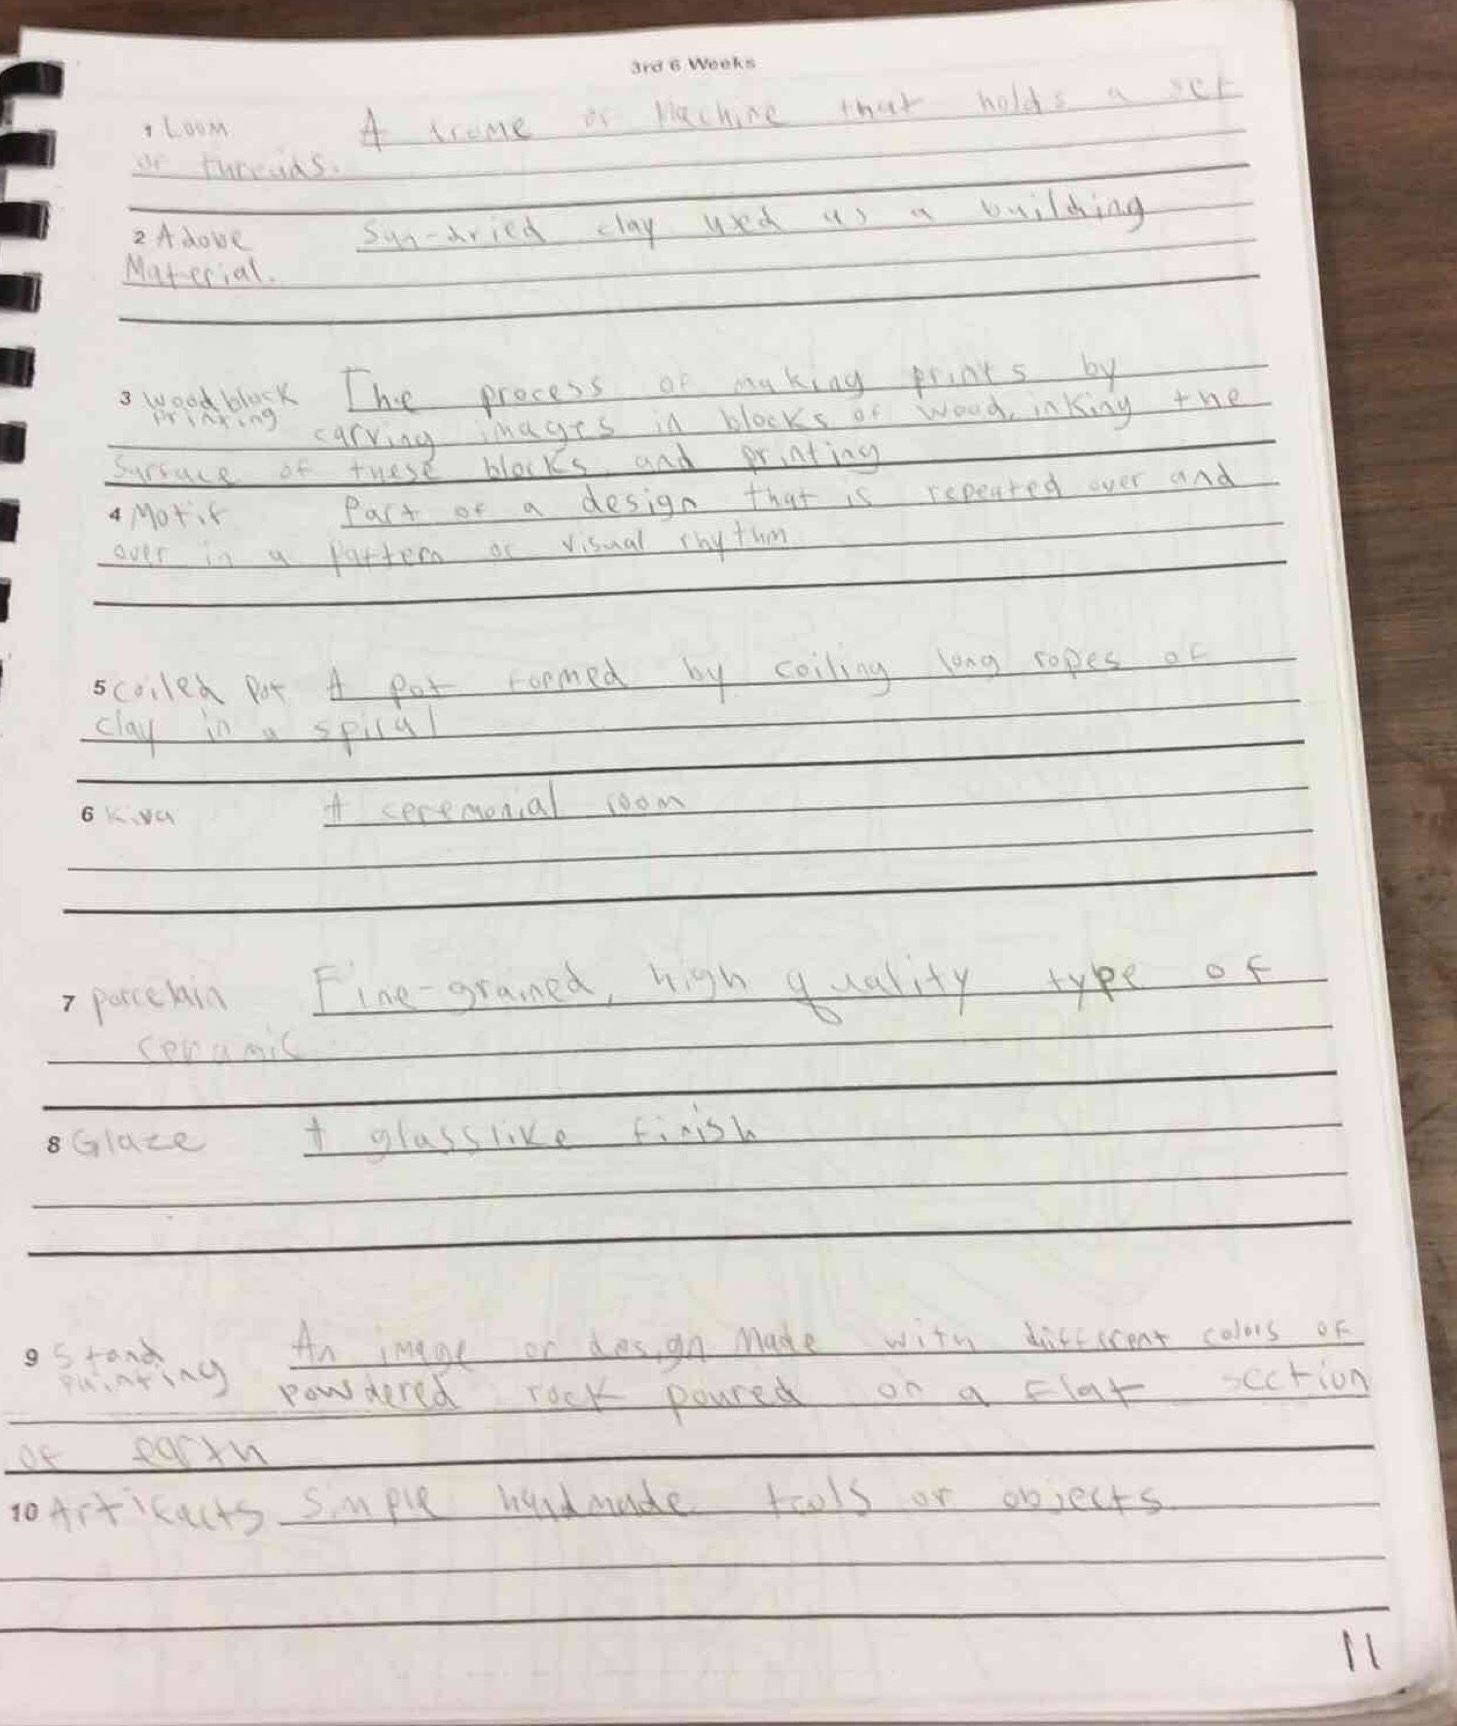 3rd 6 Weeks
1 Loom A frame or Machine that holds a set
of threads.
2 Adobe Sun-dried clay used as a building
Material.
3 Woodblock The process of making prints by
printing carving images in blocks of wood, inking the
surface of these blocks, and printing
4 Motif Part of a design that is repeated over and
over in a pattern or visual rhythm
5 coiled pot A pot formed by coiling long ropes of
clay in a spiral
6 Kiva A ceremonial room
7 porcelain Fine-grained, high quality type of
ceramic
8 Glaze A glasslike finish
9 Stand An image or design Made with different colors of
painting powdered rock poured on a flat section
of earth
10 Artifacts Simple handmade tools or objects.
11